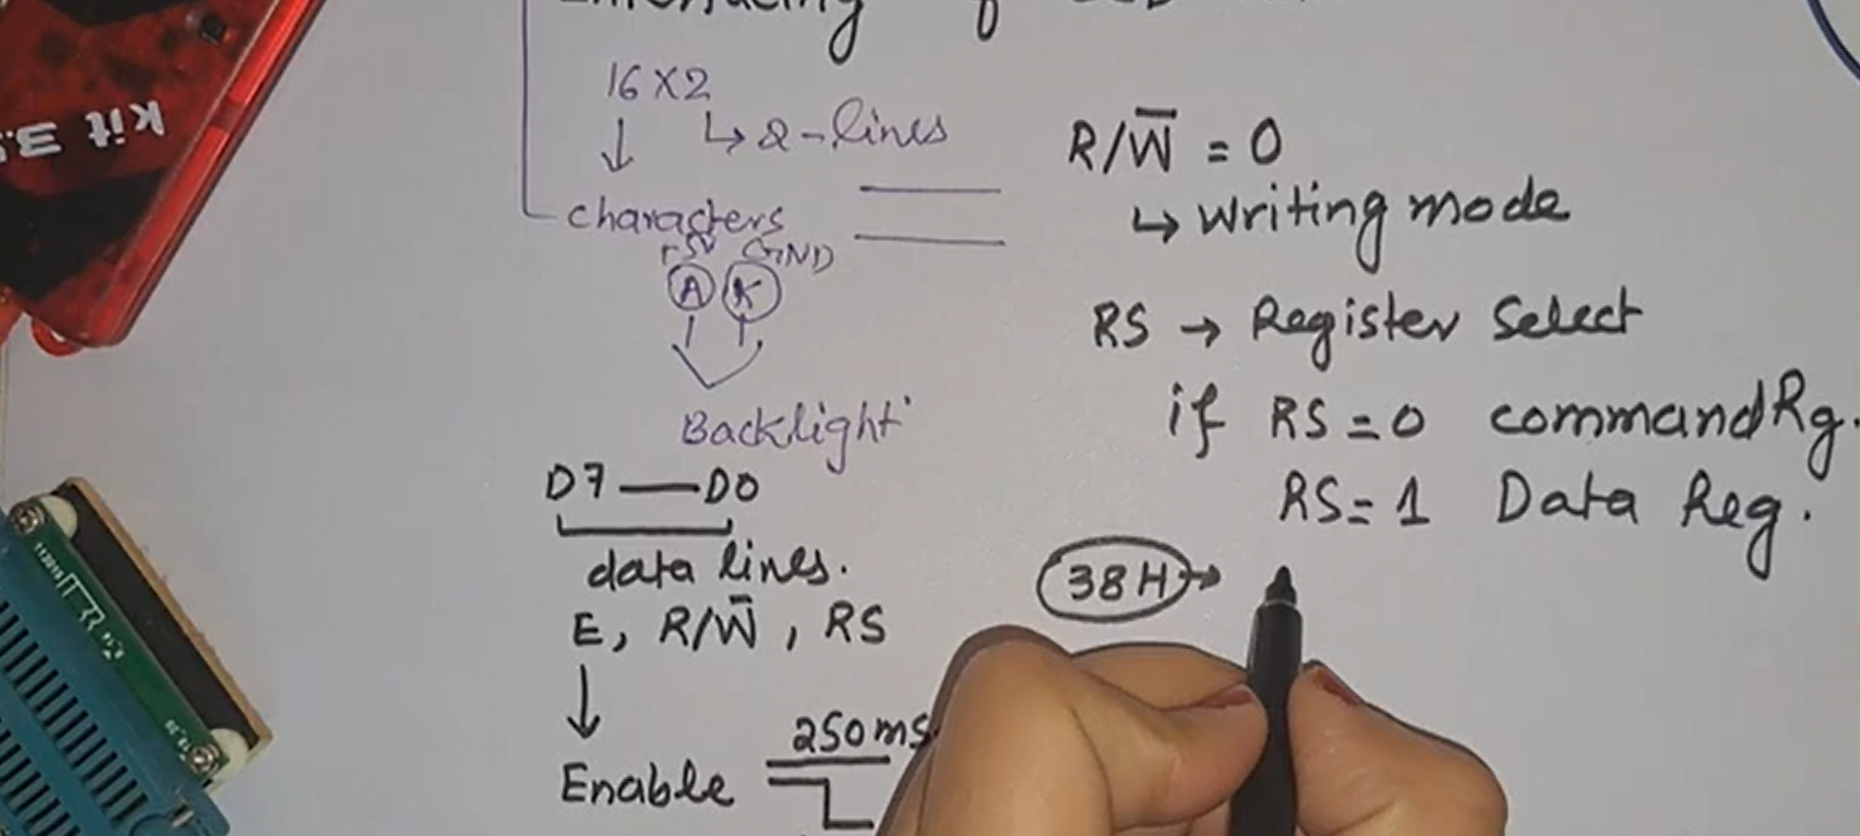 Interfacing of LCD
16 X 2
↓ ↳ 2-lines
characters
+5V GND
A K
Backlight
D7 — D0
data lines.
E, R/W̅, RS
↓
Enable
250ms
R/W̅ = 0
↳ writing mode
RS → Register Select
if RS = 0 command Rg.
RS = 1 Data Reg.
38H →
Kit 3.